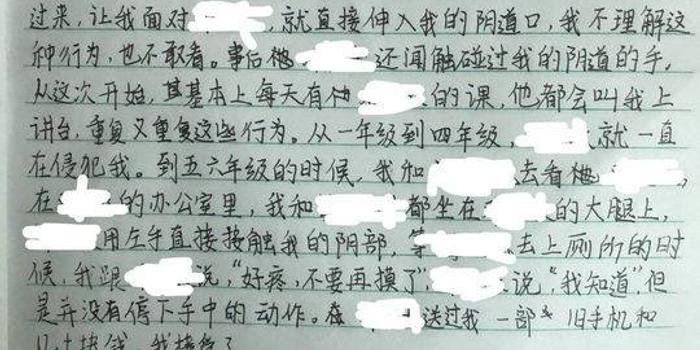 过来，让我面对，就直接伸入我的阴道口，我不理解这
种行为，也不敢看。事后他还闻触碰过我的阴道的手。
从这次开始，其基本上每天有他的课，他都会叫我上
讲台，重复又重复这些行为。从一年级到四年级，就一直
在侵犯我。到五六年级的时候，我和去看他，
在的办公室里，我和都坐在的大腿上，
用左手直接接触我的阴部，等去上厕所的时
候，我跟说，“好疼，不要再摸了”，说“我知道”，但
是并没有停下手中的动作。送过我一部旧手机和